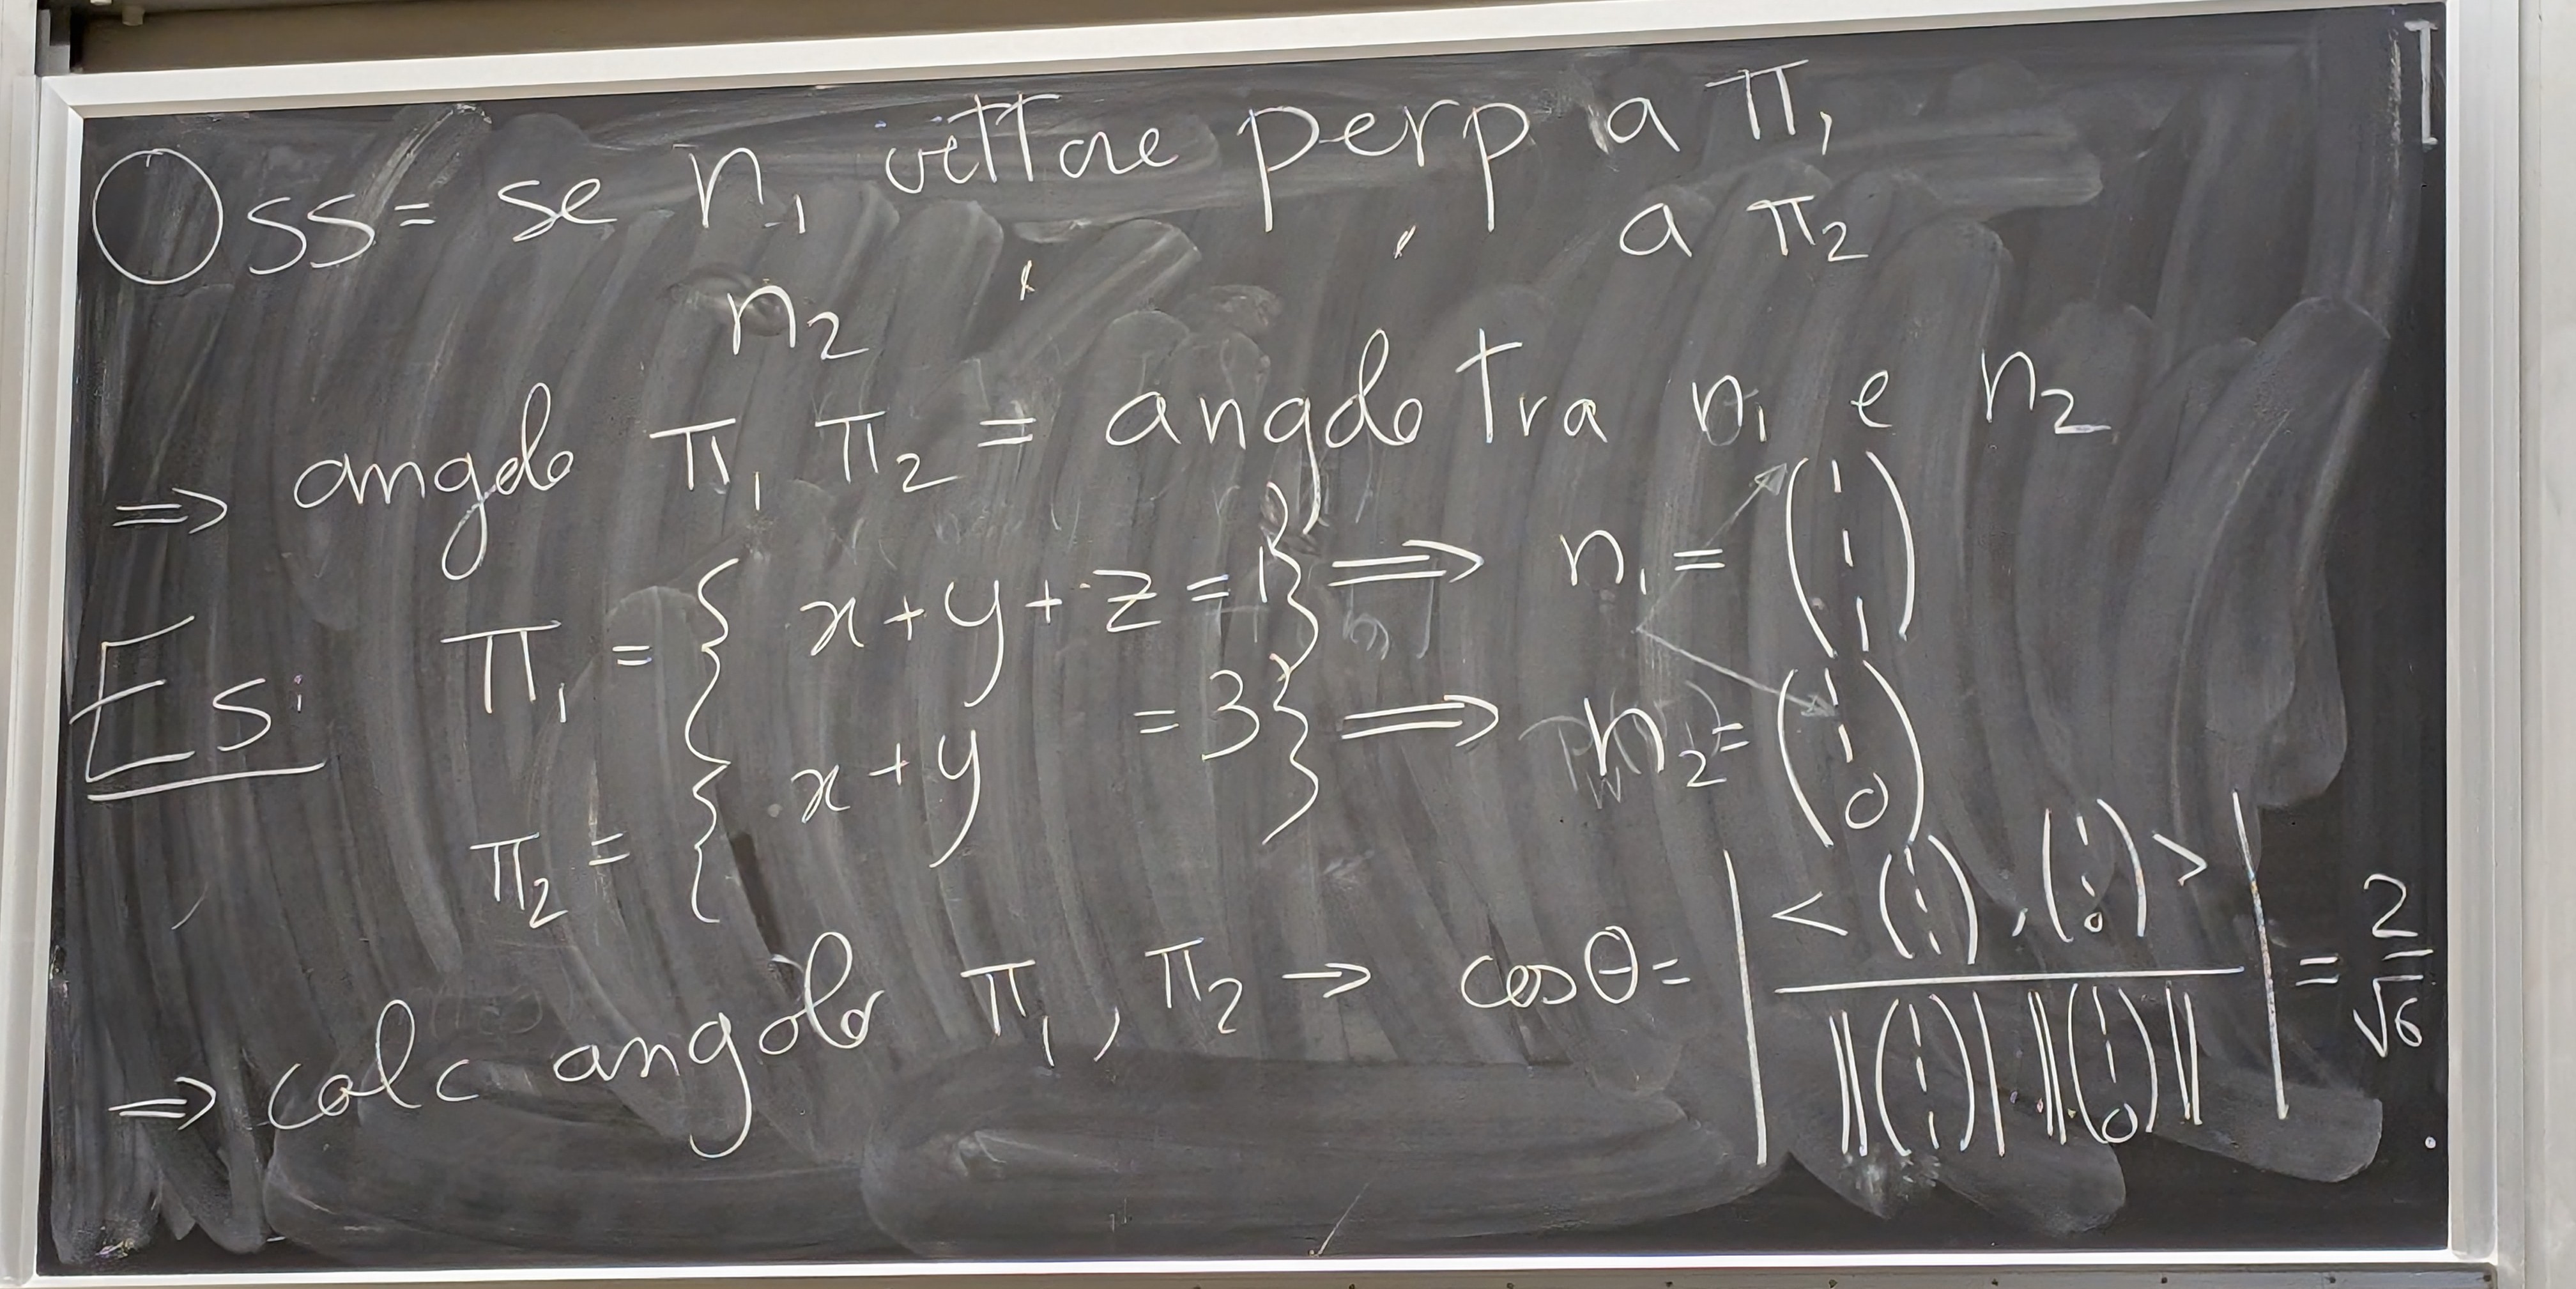 Oss= se n₁ vettore perp a π₁
n₂ " " a π₂
⇒ angolo π₁ π₂ = angolo tra n₁ e n₂
Es: π₁ = { x+y+z=1} ⟹ n₁ = (1 1 1)
π₂ = { x+y =3} ⟹ n₂= (1 1 0)
⇒ calc angolo π₁, π₂ → cosθ= | <(1 1 1), (1 1 0)> / ‖(1 1 1)| · ‖(1 1 0)‖ | = 2/√6